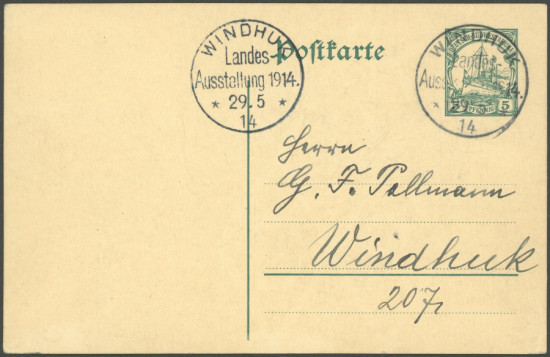 WINDHUK
Landes-
Ausstellung 1914.
* 29.5 *
14
Postkarte
WINDHUK
Landes-
Auss 14.
* 29
14
5
Herrn
G. F. Pollmann
Windhuk
207,